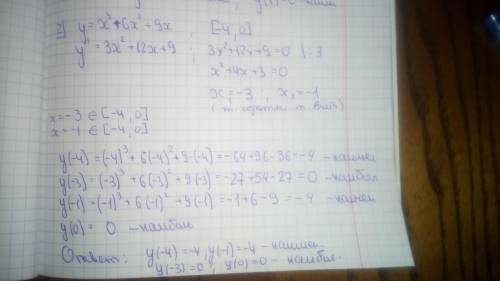 2) y = x³ + 6x² + 9x , [-4, 0]
y' = 3x² + 12x + 9 ; 3x² + 12x + 9 = 0 | : 3
x² + 4x + 3 = 0
x₁ = -3 , x₂ = -1
(т. обратной т. Виета)
x = -3 ∈ [-4, 0]
x = -1 ∈ [-4, 0]
y(-4) = (-4)³ + 6(-4)² + 9·(-4) = -64 + 96 - 36 = -4 - наимен
y(-3) = (-3)³ + 6(-3)² + 9(-3) = -27 + 54 - 27 = 0 - наибол
y(-1) = (-1)³ + 6(-1)² + 9(-1) = -1 + 6 - 9 = -4 - наимен
y(0) = 0 - наибол
Ответ: y(-4) = -4, y(-1) = -4 - наимен.
y(-3) = 0 , y(0) = 0 - наибол.